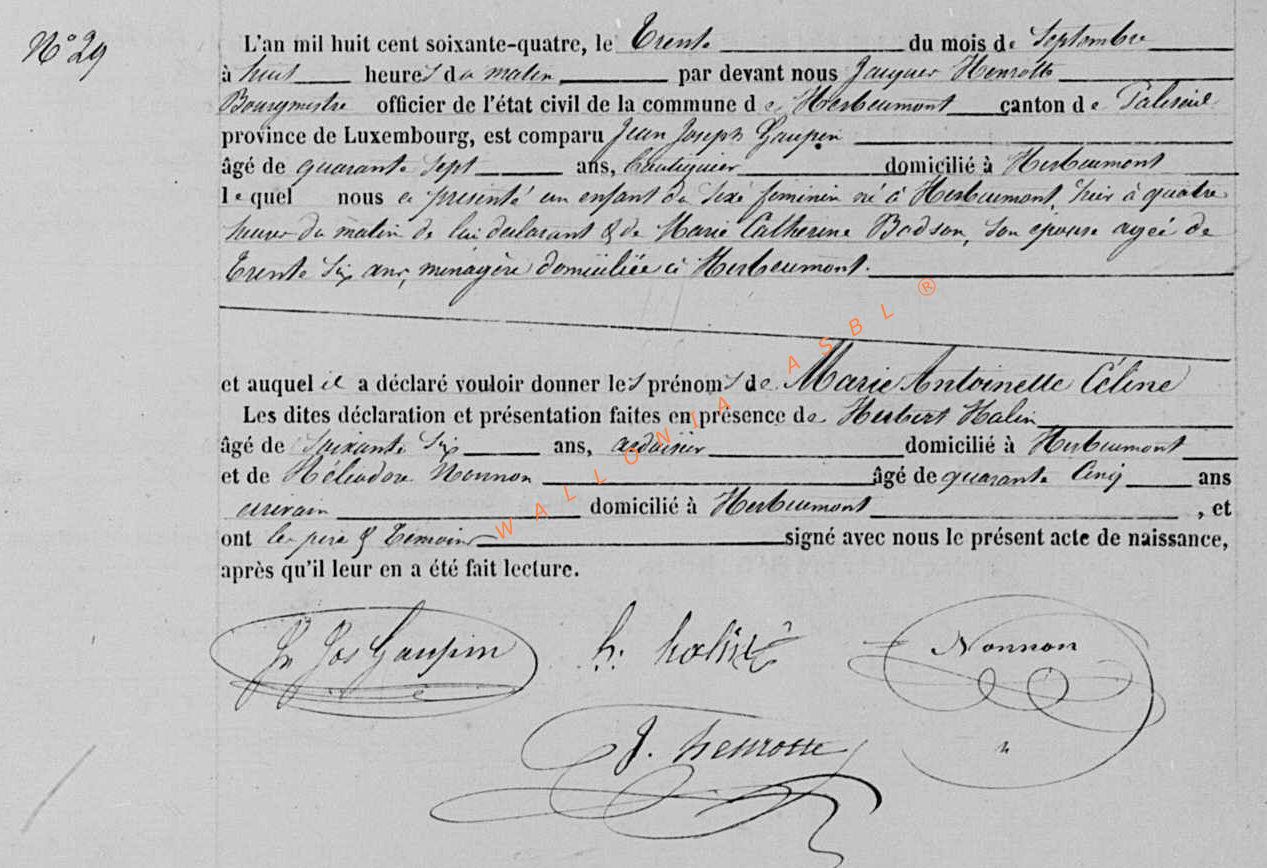 N° 29
L'an mil huit cent soixante-quatre, le Trente du mois de Septembre
à huit heures du matin par devant nous Jacques Henrotte
Bourgmestre officier de l'état civil de la commune de Herbeumont canton de Paliseul
province de Luxembourg, est comparu Jean Joseph Gaupin
âgé de quarante sept ans, domicilié à Herbeumont
lequel nous a présenté un enfant du sexe feminin né à Herbeumont, hier à quatre
heures du matin de lui declarant & de Marie Catherine Badson, son épouse agée de
Trente Six ans, menagère domiciliée à Herbeumont.
et auquel il a déclaré vouloir donner les prénoms de Marie Antoinette Céline
Les dites déclaration et présentation faites en présence de Herbert Halin
âgé de Soixante Six ans, ardoisier domicilié à Herbeumont
et de Héliodore Nonnon âgé de quarante Cinq ans
domicilié à Herbeumont , et
ont les pere & Temoins signé avec nous le présent acte de naissance,
après qu'il leur en a été fait lecture.
Jn Jos Gaupin h. halin Nonnon
J. henrotte
WALLONIA ASBL ®